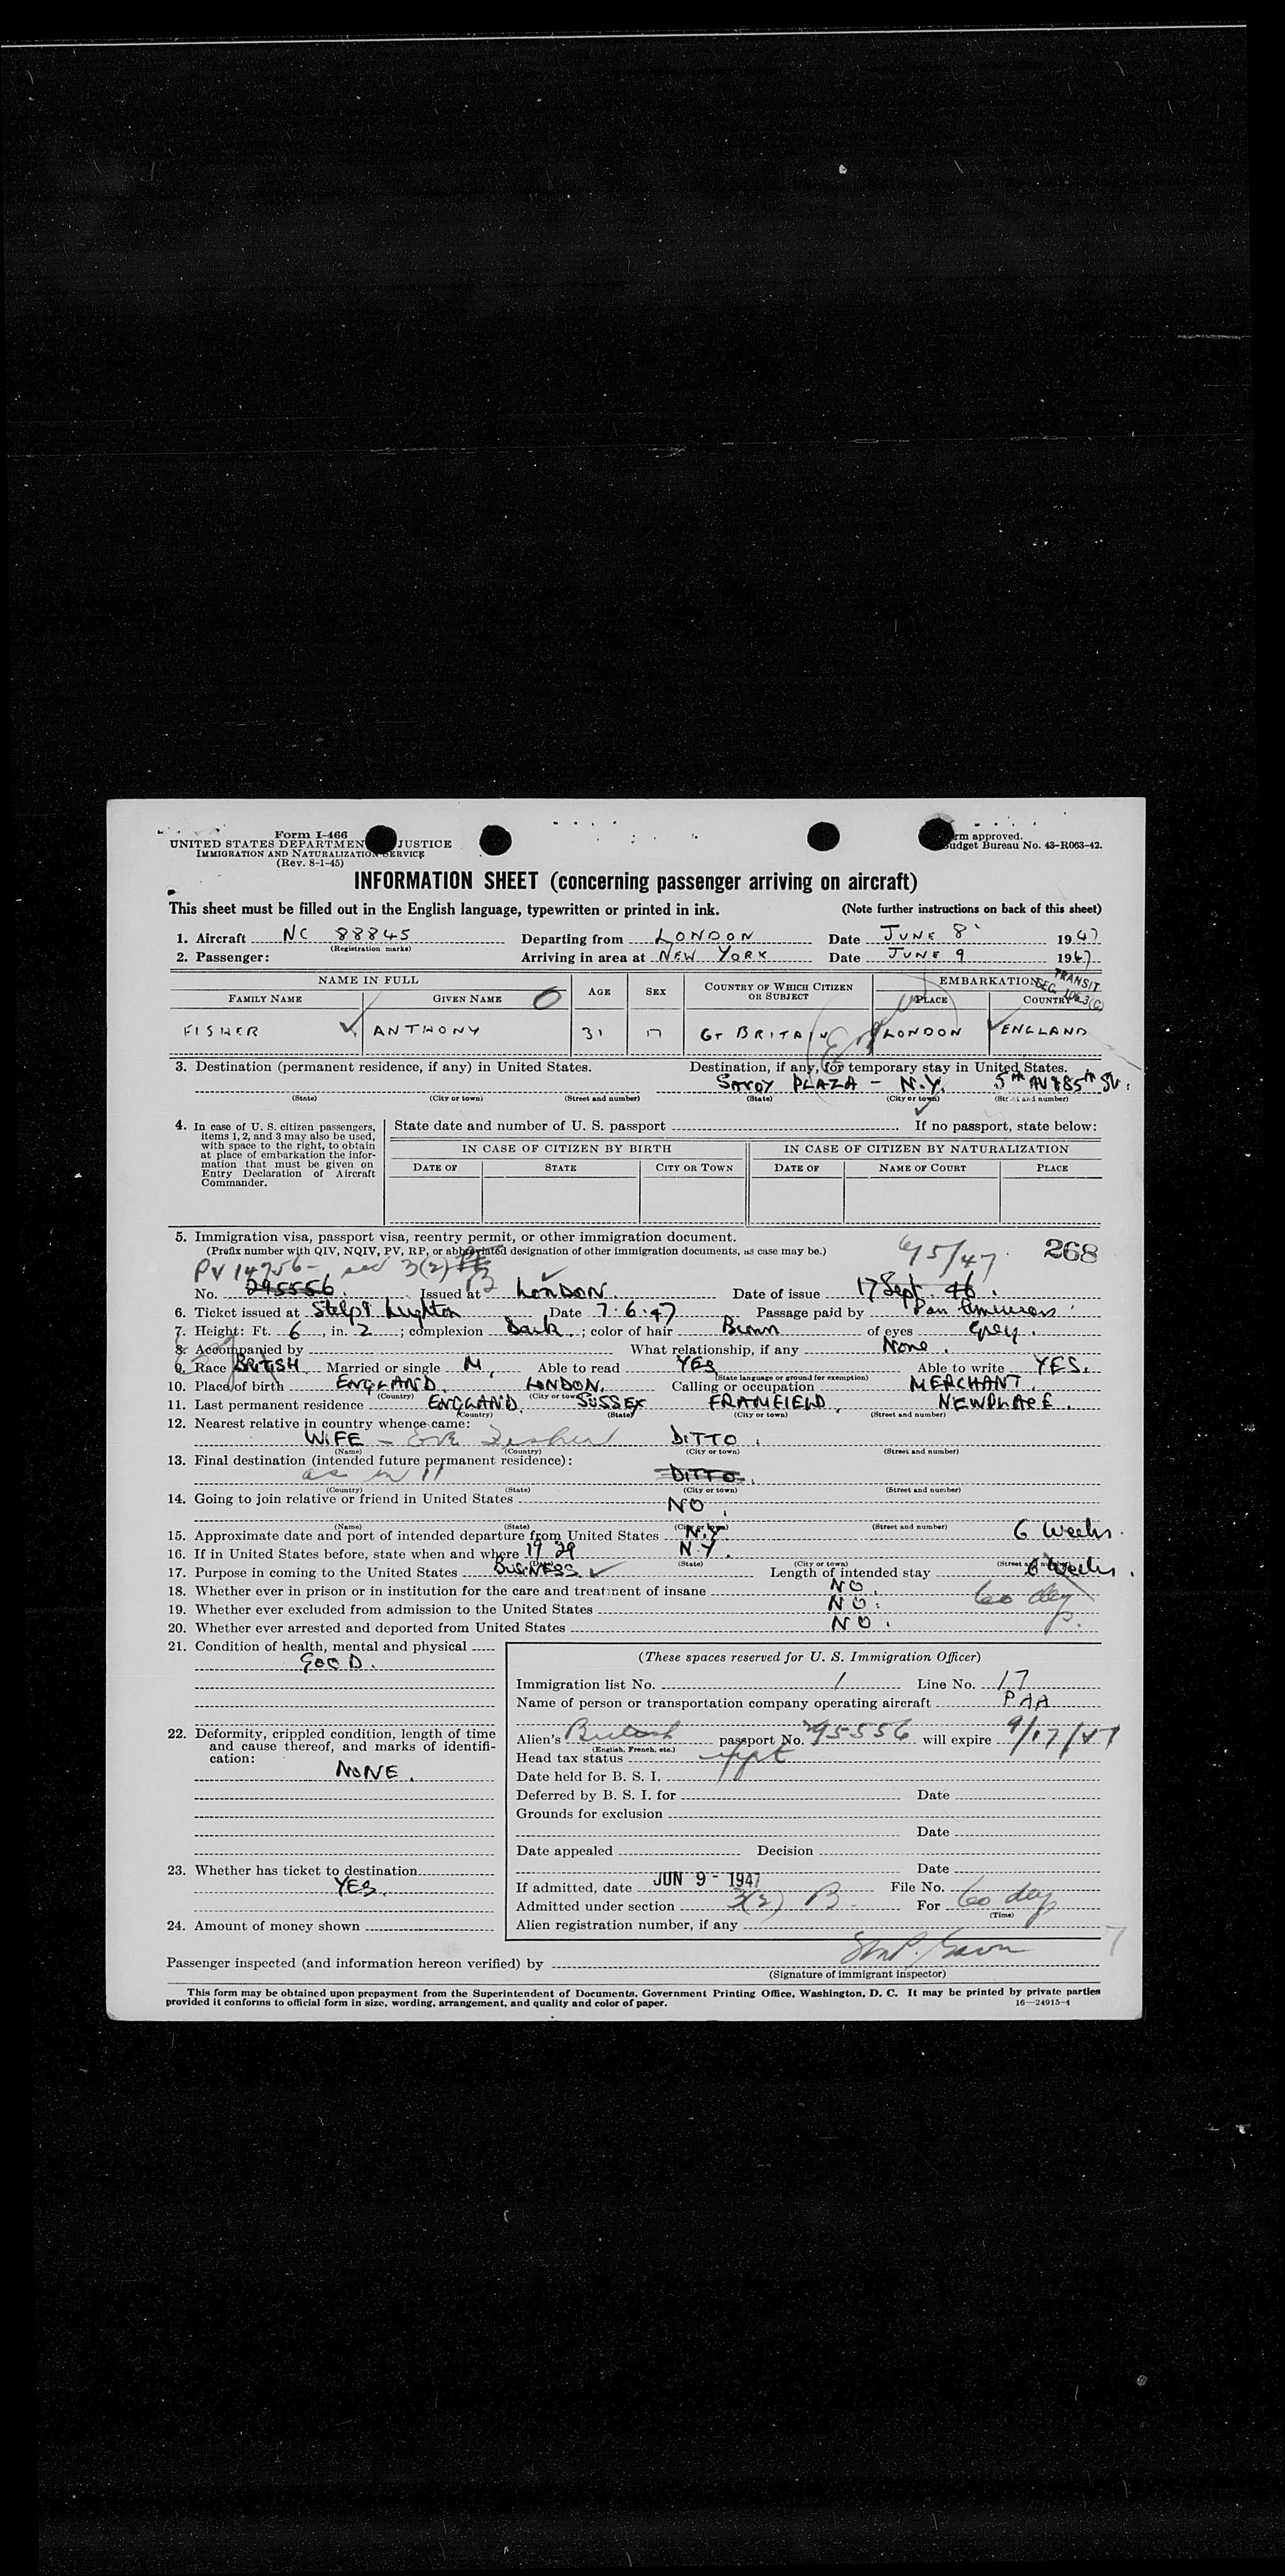 Form I-466
UNITED STATES DEPARTMENT JUSTICE
IMMIGRATION AND NATURALIZATION SERVICE
(Rev. 8-1-45)
rm approved.
udget Bureau No. 43-R063-42.
INFORMATION SHEET (concerning passenger arriving on aircraft)
This sheet must be filled out in the English language, typewritten or printed in ink. (Note further instructions on back of this sheet)
1. Aircraft NC 88845 Departing from LONDON Date JUNE 8 1947
(Registration marks)
2. Passenger: Arriving in area at NEW YORK Date JUNE 9 1947
TRANSIT
NAME IN FULL AGE SEX COUNTRY OF WHICH CITIZEN OR SUBJECT EMBARKATION
FAMILY NAME GIVEN NAME PLACE COUNTRY
FISHER ANTHONY 31 M GT BRITAIN LONDON ENGLAND
3. Destination (permanent residence, if any) in United States. Destination, if any, for temporary stay in United States.
SAVOY PLAZA - N.Y. 5TH AV & 85TH St.
(State) (City or town) (Street and number) (State) (City or town) (Street and number)
4. In case of U. S. citizen passengers, items 1, 2, and 3 may also be used, with space to the right, to obtain at place of embarkation the information that must be given on Entry Declaration of Aircraft Commander.
State date and number of U. S. passport If no passport, state below:
IN CASE OF CITIZEN BY BIRTH IN CASE OF CITIZEN BY NATURALIZATION
DATE OF STATE CITY OR TOWN DATE OF NAME OF COURT PLACE
5. Immigration visa, passport visa, reentry permit, or other immigration document.
(Prefix number with QIV, NQIV, PV, RP, or abbreviated designation of other immigration documents, as case may be.)
PV 14956 - sec 3(2) B 6/5/47 268
No. 295556 Issued at LONDON. Date of issue 17 Sept. 46.
6. Ticket issued at Date 7.6.47 Passage paid by Pan
7. Height: Ft. 6, in. 2; complexion Dark; color of hair Brown of eyes Grey.
8. Accompanied by What relationship, if any None.
9. Race BRITISH Married or single M. Able to read YES Able to write YES.
(State language or ground for exemption)
10. Place of birth ENGLAND LONDON. Calling or occupation MERCHANT
(Country) (City or town)
11. Last permanent residence ENGLAND. SUSSEX FRAMFIELD, NEWPLACE.
(Country) (State) (City or town) (Street and number)
12. Nearest relative in country whence came:
WIFE - Eve Fisher DITTO.
(Name) (Country) (City or town) (Street and number)
13. Final destination (intended future permanent residence):
as in 11 DITTO.
(Country) (State) (City or town) (Street and number)
14. Going to join relative or friend in United States
NO.
(Name) (State) (City or town) (Street and number)
15. Approximate date and port of intended departure from United States N.Y. 6 Weeks.
16. If in United States before, state when and where 1929 N.Y.
(State) (City or town) (Street and number)
17. Purpose in coming to the United States BUSINESS Length of intended stay 6 Weeks.
18. Whether ever in prison or in institution for the care and treatment of insane NO. 60 days
19. Whether ever excluded from admission to the United States NO.
20. Whether ever arrested and deported from United States NO.
21. Condition of health, mental and physical
GOOD.
22. Deformity, crippled condition, length of time and cause thereof, and marks of identification:
NONE.
23. Whether has ticket to destination
YES.
24. Amount of money shown
(These spaces reserved for U. S. Immigration Officer)
Immigration list No. 1 Line No. 17
Name of person or transportation company operating aircraft PAA
Alien's British passport No. 295556 will expire 9/17/47
(English, French, etc.)
Head tax status
Date held for B. S. I.
Deferred by B. S. I. for Date
Grounds for exclusion
Date
Date appealed Decision
Date
If admitted, date JUN 9 - 1947 File No.
Admitted under section 3(2) B For 60 days
(Time)
Alien registration number, if any
Passenger inspected (and information hereon verified) by
(Signature of immigrant inspector)
This form may be obtained upon prepayment from the Superintendent of Documents, Government Printing Office, Washington, D. C. It may be printed by private parties
provided it conforms to official form in size, wording, arrangement, and quality and color of paper. 16—24915-4